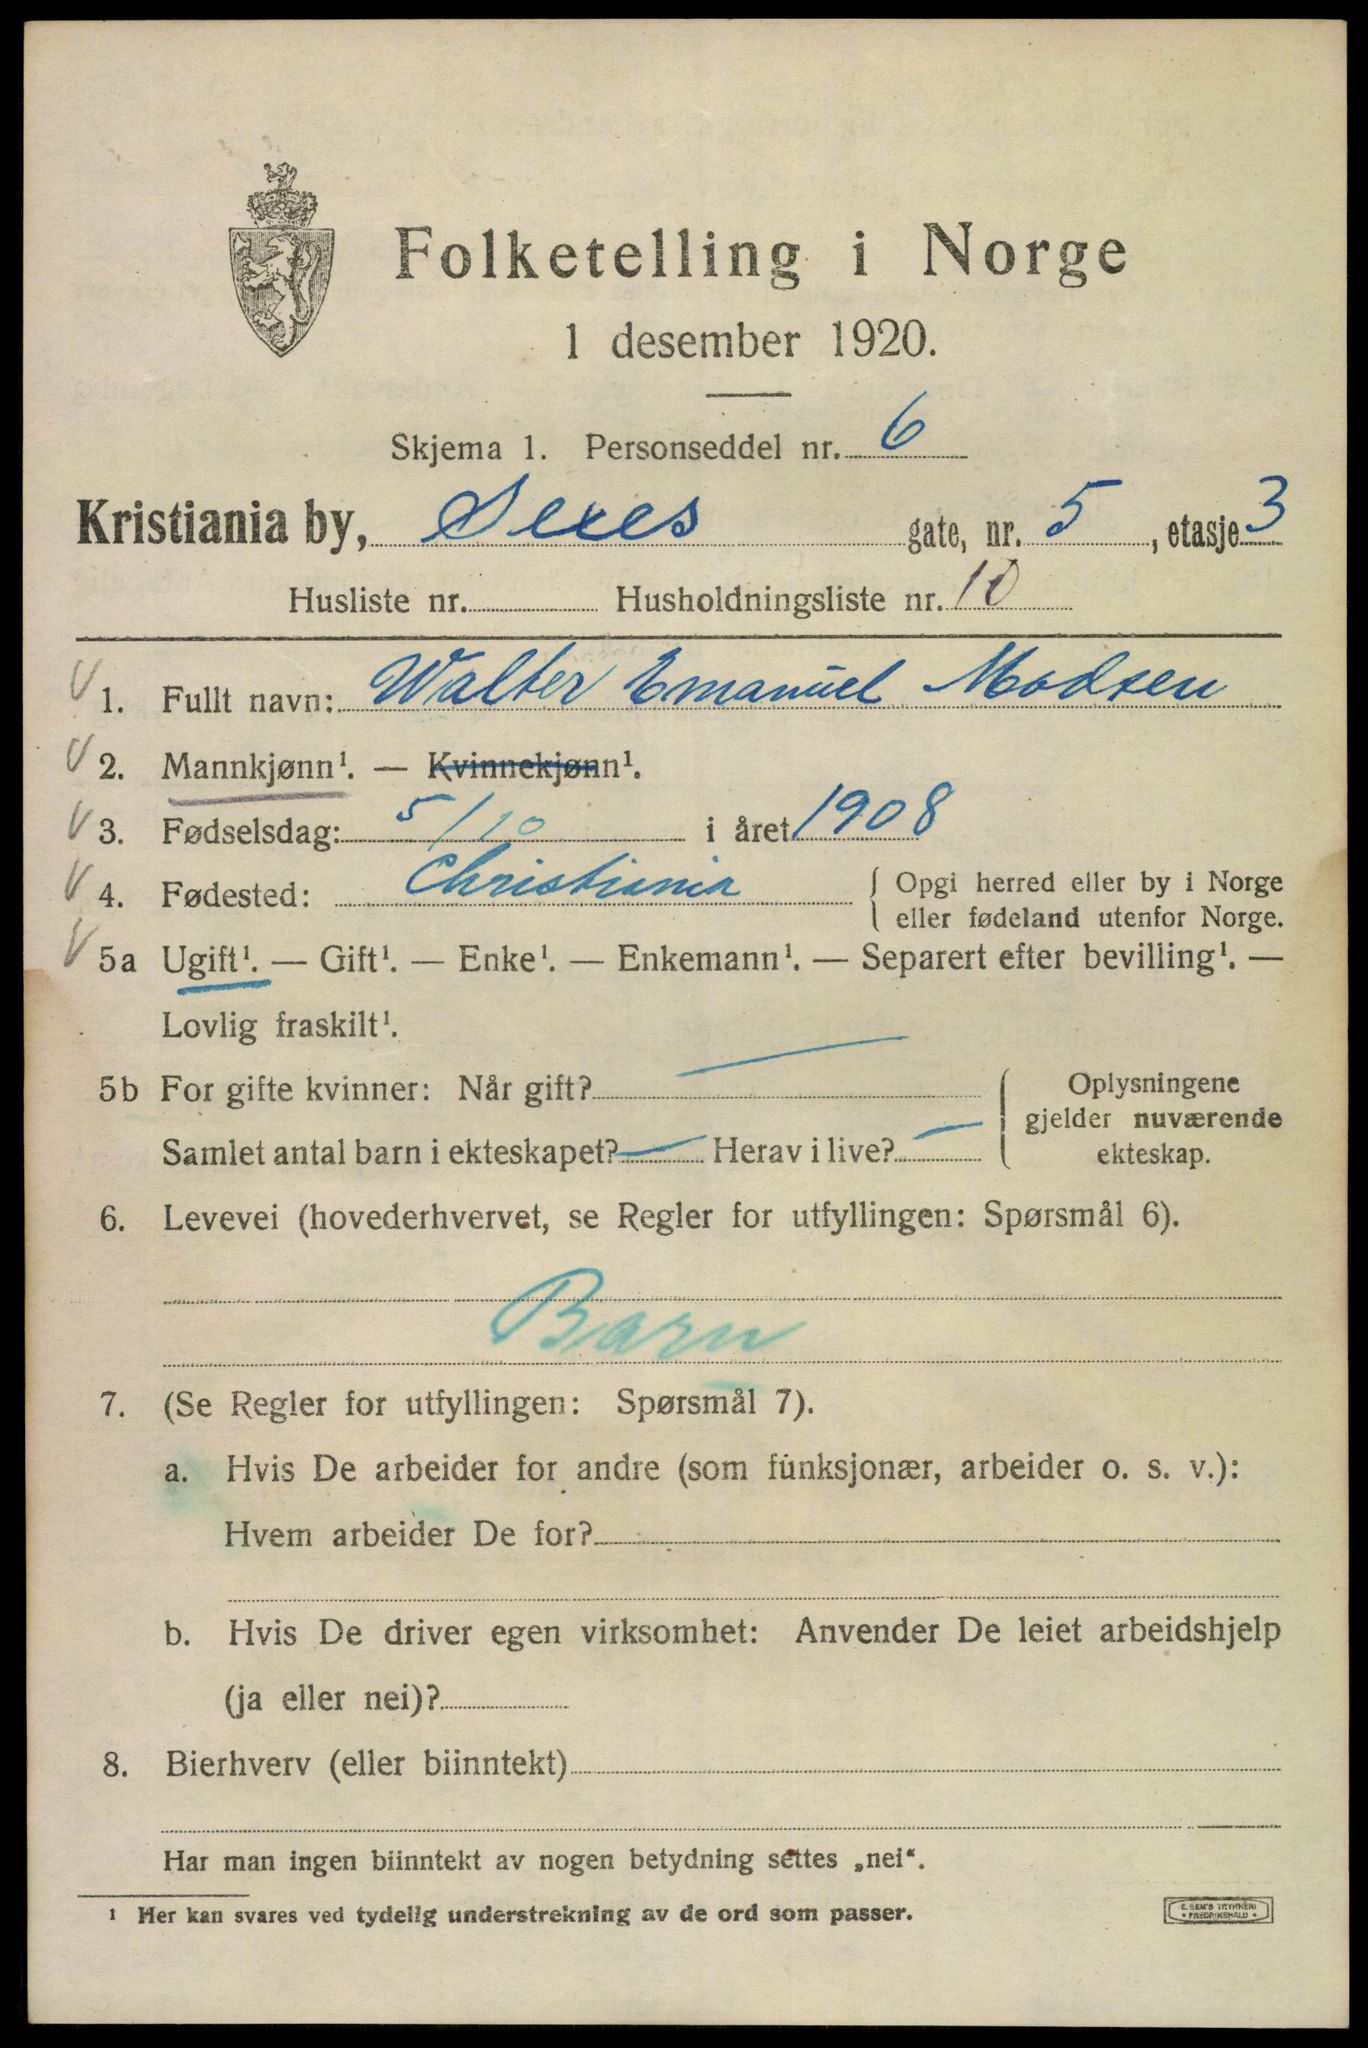 Folketelling i Norge
1 desember 1920.
Skjema 1. Personseddel nr. 6
Kristiania by, Sexes gate, nr. 5, etasje 3
Husliste nr. Husholdningsliste nr. 10
1. Fullt navn: Walter Emanuel Madsen
2. Mannkjønn¹. — Kvinnekjønn¹.
3. Fødselsdag: 5/10 i året 1908
4. Fødested: Christiania { Opgi herred eller by i Norge
eller fødeland utenfor Norge.
5a Ugift¹. — Gift¹. — Enke¹. — Enkemann¹. — Separert efter bevilling¹. —
Lovlig fraskilt¹.
5b For gifte kvinner: Når gift? —
Samlet antal barn i ekteskapet? — Herav i live? —
Oplysningene
gjelder nuværende
ekteskap.
6. Levevei (hovederhvervet, se Regler for utfyllingen: Spørsmål 6).
Barn
7. (Se Regler for utfyllingen: Spørsmål 7).
a. Hvis De arbeider for andre (som funksjonær, arbeider o. s. v.):
Hvem arbeider De for?
b. Hvis De driver egen virksomhet: Anvender De leiet arbeidshjelp
(ja eller nei)?
8. Bierhverv (eller biinntekt)
Har man ingen biinntekt av nogen betydning settes „nei“.
¹ Her kan svares ved tydelig understrekning av de ord som passer.
E. SEM'S TRYKKERI
FREDRIKSHALD